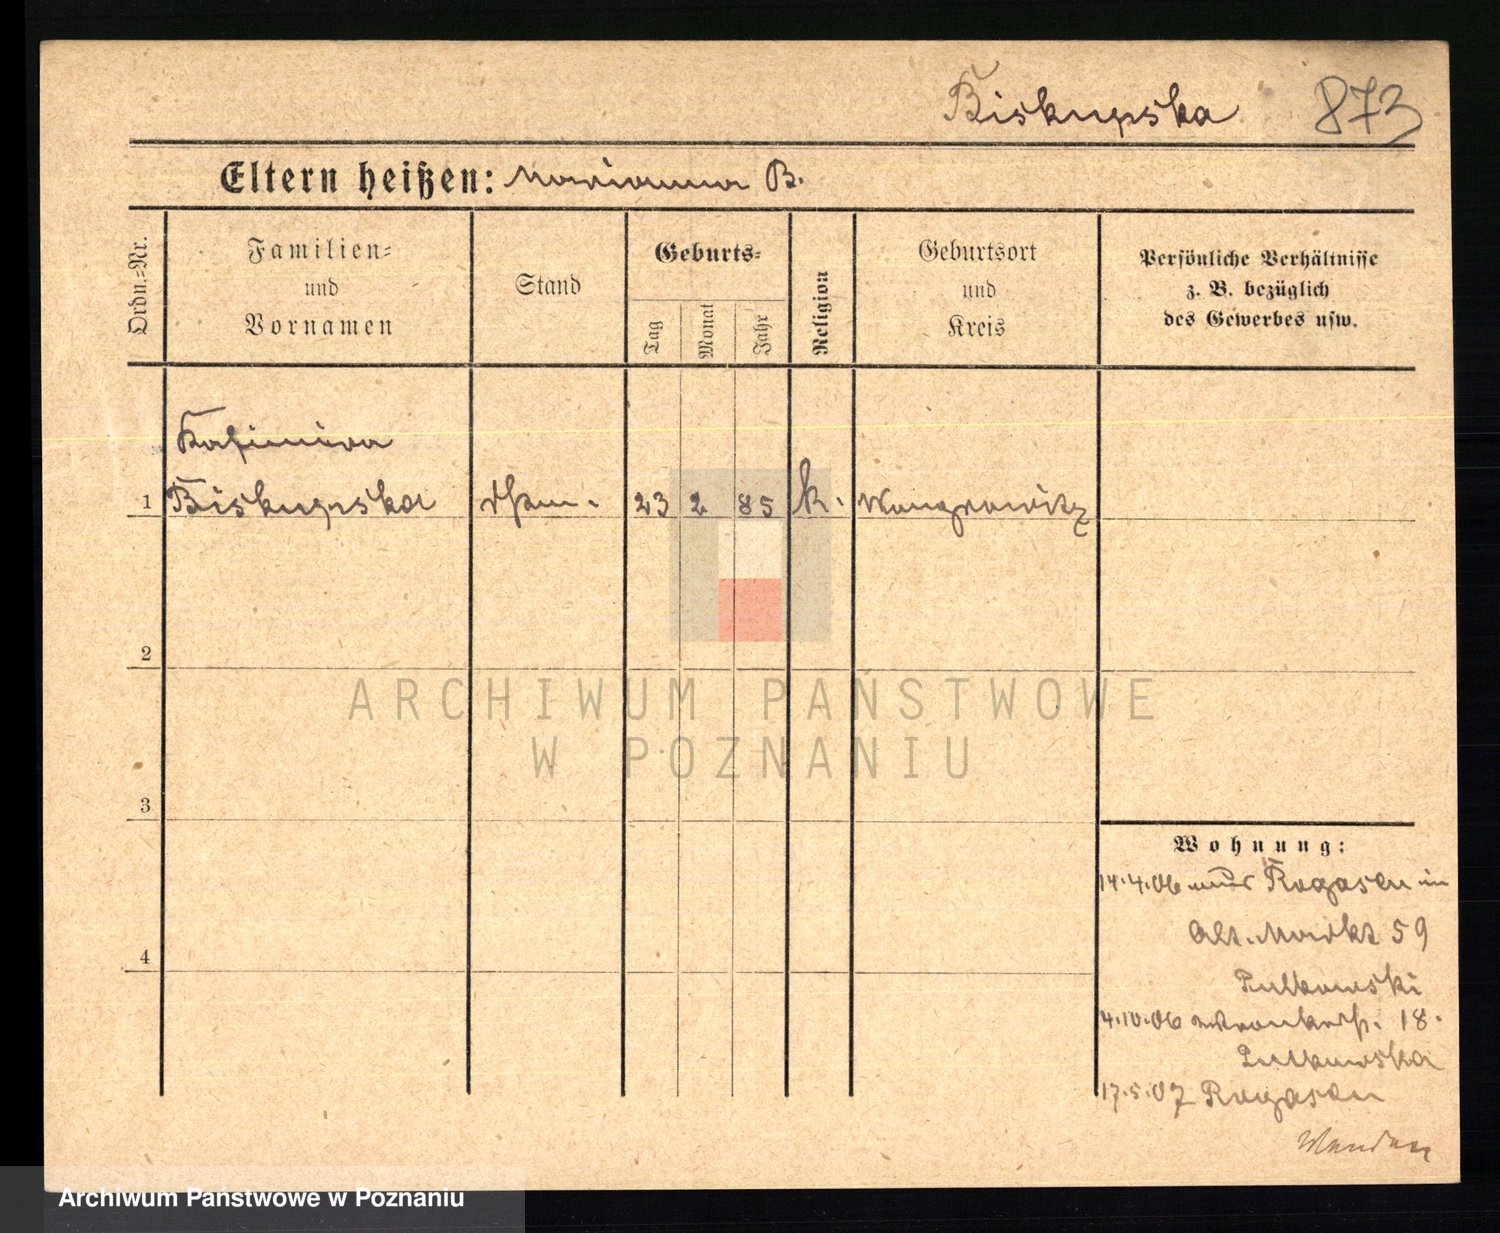 Biskupska 873
Eltern heißen: Marianna B.
Ordn.-Nr.
Familien-
und
Vornamen
Stand
Geburts-
Tag
Monat
Jahr
Religion
Geburtsort
und
Kreis
Persönliche Verhältnisse
z. B. bezüglich
des Gewerbes usw.
Kasimira
1 Biskupska 23 2 85 k. Wongrowitz
2
3
4
Wohnung:
14.4.06 aus Rogasen in
Alt. Markt 59
4.10.06 Wronkerstr. 18.
17.5.07 Rogasen
ARCHIWUM PAŃSTWOWE
W POZNANIU
Archiwum Państwowe w Poznaniu